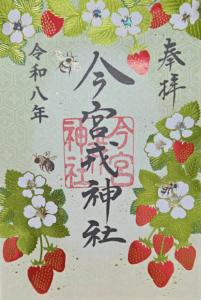 奉拝
今宮戎神社
令和八年
今宮
神社